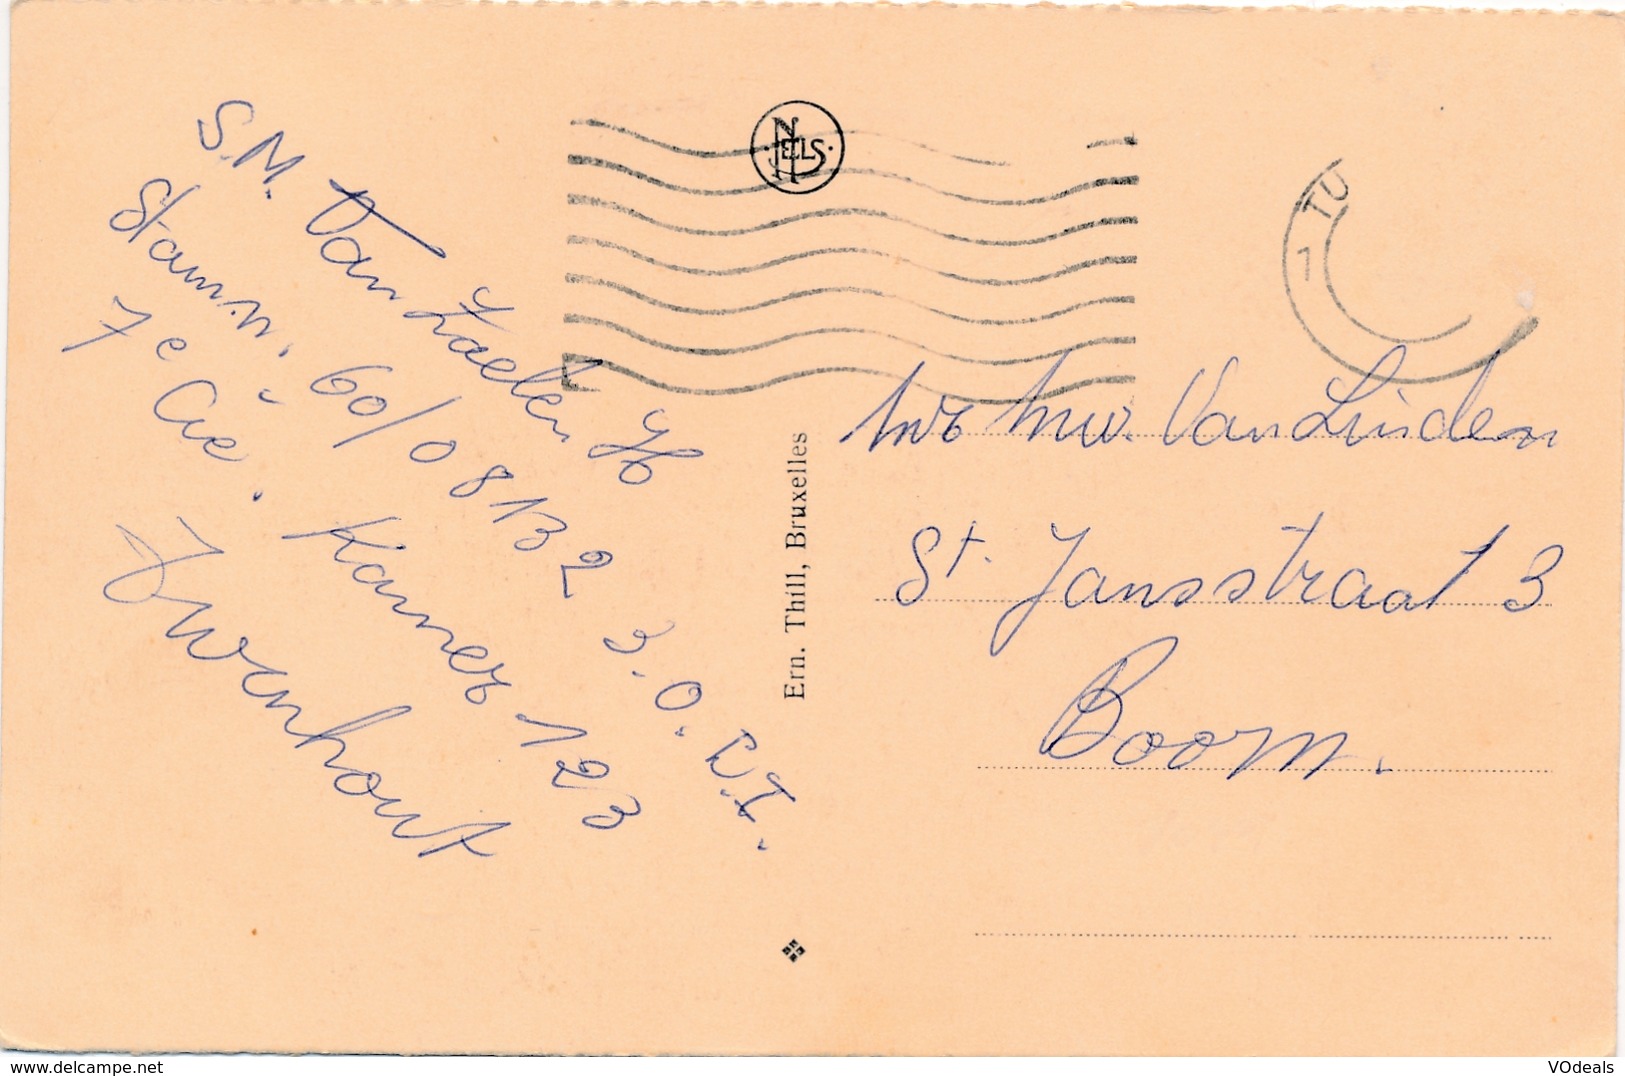 S.M. Van Zaelen H
Stamnr. 60/08132 3.O.L.I.
7e Cie. Kamer 123
Turnhout
NELS
TU
1
Ern. Thill, Bruxelles
Mr Mw. Van Linden
St. Jansstraat 3
Boom.
www.delcampe.net
VOdeals